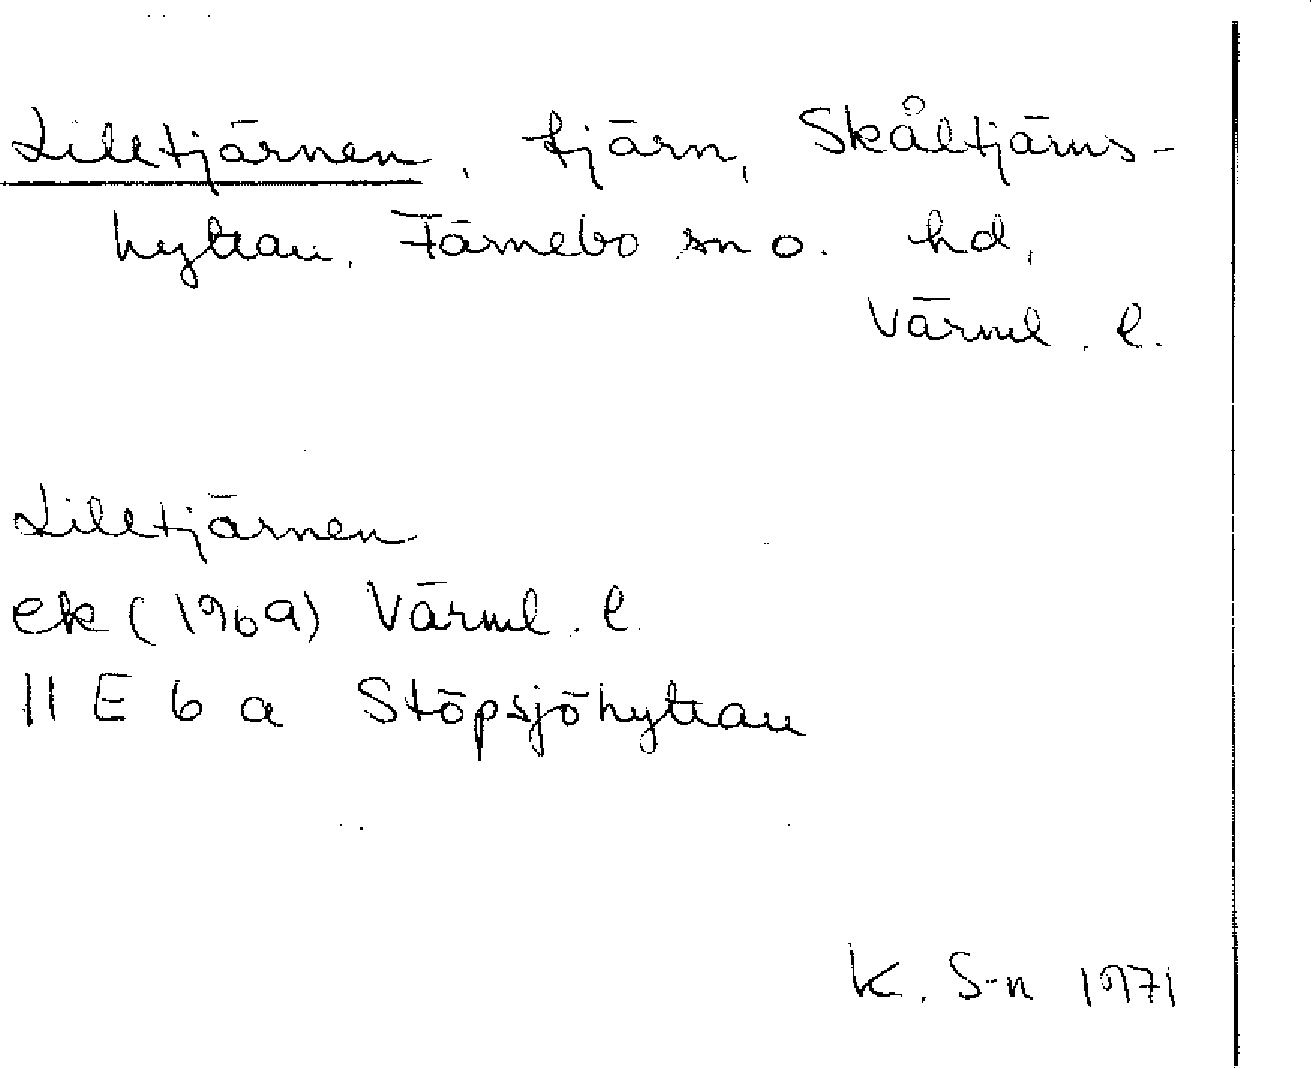 Lilltjärnen, tjärn, Skåltjärns-
hyttan, Färnebo sn o. hd,
Värml. l.
Lilltjärnen
ek (1969) Värml. l.
11 E 6 a Stöpsjöhyttan
K. S-n 1971